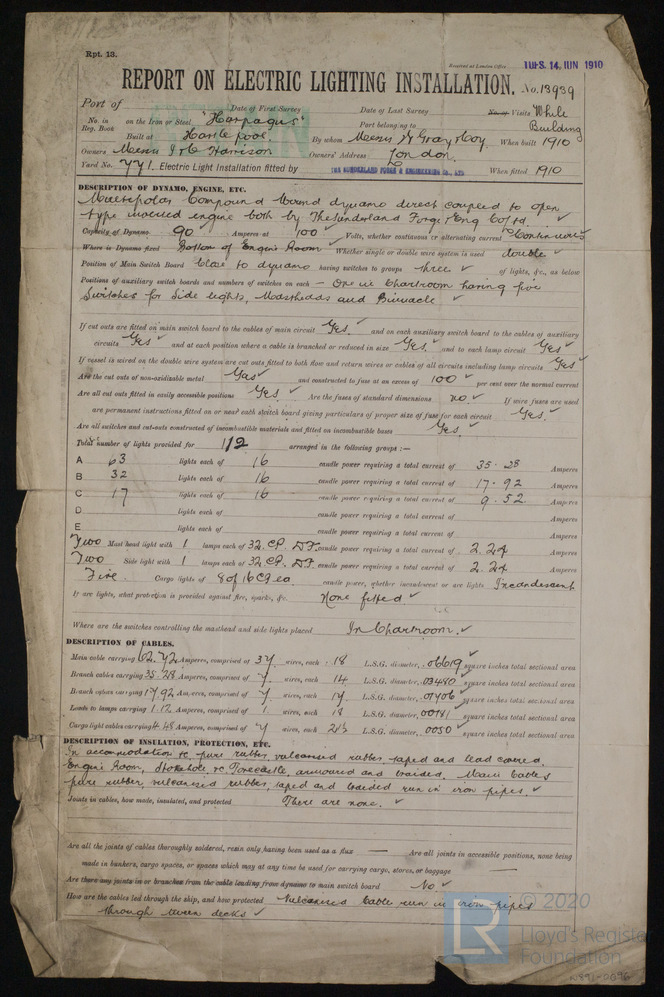 Rpt. 13.
Received at London Office TUES. 14. JUN 1910
REPORT ON ELECTRIC LIGHTING INSTALLATION. No. 13939
Port of Date of First Survey Date of Last Survey No. of Visits While Building
No. in Reg. Book on the Iron or Steel "Harpagus" Port belonging to
Built at Hartlepool By whom Messrs W Gray & Coy When built 1910
Owners Messrs J & C Harrison Owners' Address London
Yard No. 771. Electric Light Installation fitted by THE SUNDERLAND FORGE & ENGINEERING Co., LTD When fitted 1910
DESCRIPTION OF DYNAMO, ENGINE, ETC.
Multipolar Compound Wound dynamo direct coupled to open
type inverted engine both by The Sunderland Forge & Eng Co Ltd.
Capacity of Dynamo 90 Amperes at 100 Volts, whether continuous or alternating current Continuous
Where is Dynamo fixed Bottom of Engine Room Whether single or double wire system is used double
Position of Main Switch Board Close to dynamo having switches to groups three of lights, &c., as below
Positions of auxiliary switch boards and numbers of switches on each — One in Chartroom having five
Switches for Side lights, Mastheads and Binnacle
If cut outs are fitted on main switch board to the cables of main circuit Yes. and on each auxiliary switch board to the cables of auxiliary
circuits Yes and at each position where a cable is branched or reduced in size Yes. and to each lamp circuit Yes
If vessel is wired on the double wire system are cut outs fitted to both flow and return wires or cables of all circuits including lamp circuits Yes
Are the cut outs of non-oxidizable metal Yes and constructed to fuse at an excess of 100 per cent over the normal current
Are all cut outs fitted in easily accessible positions Yes. Are the fuses of standard dimensions no If wire fuses are used
are permanent instructions fitted on or near each switch board giving particulars of proper size of fuse for each circuit Yes.
Are all switches and cut-outs constructed of incombustible materials and fitted on incombustible bases Yes.
Total number of lights provided for 112 arranged in the following groups :—
A 63 lights each of 16 candle power requiring a total current of 35.28 Amperes
B 32 lights each of 16 candle power requiring a total current of 17.92 Amperes
C 17 lights each of 16 candle power requiring a total current of 9.52 Amperes
D lights each of candle power requiring a total current of Amperes
E lights each of candle power requiring a total current of Amperes
Two Mast head light with 1 lamps each of 32. CP. D.F. candle power requiring a total current of 2.24 Amperes
Two Side light with 1 lamps each of 32 CP. D.F. candle power requiring a total current of 2.24 Amperes
Five Cargo lights of 8 of 16 CP ea candle power, whether incandescent or arc lights Incandescent
If arc lights, what protection is provided against fire, sparks, &c. None fitted
Where are the switches controlling the masthead and side lights placed In Chartroom.
DESCRIPTION OF CABLES.
Main cable carrying 62.72 Amperes, comprised of 37 wires, each 18 L.S.G. diameter, .06619 square inches total sectional area
Branch cables carrying 35.28 Amperes, comprised of 7 wires, each 14 L.S.G. diameter, .03480 square inches total sectional area
Branch cables carrying 17.92 Amperes, comprised of 7 wires, each 17 L.S.G. diameter, .01706 square inches total sectional area
Leads to lamps carrying 1.12 Amperes, comprised of 1 wires, each 18 L.S.G. diameter, .00181 square inches total sectional area
Cargo light cables carrying 4.48 Amperes, comprised of wires, each L.S.G. diameter, .0050 square inches total sectional area
DESCRIPTION OF INSULATION, PROTECTION, ETC.
In accomodation &c pure rubber, vulcanised rubber, taped and lead covered,
Engine Room, Stokehole &c Forecastle, armoured and braided, Main Cables
pure rubber, vulcanised rubber, taped and braided run in iron pipes.
Joints in cables, how made, insulated, and protected There are none.
Are all the joints of cables thoroughly soldered, resin only having been used as a flux — Are all joints in accessible positions, none being
made in bunkers, cargo spaces, or spaces which may at any time be used for carrying cargo, stores, or baggage —
Are there any joints in or branches from the cable leading from dynamo to main switch board No.
How are the cables led through the ship, and how protected Vulcanised Cable run in iron pipes
through tween decks
LR
© 2020
Lloyd's Register
Foundation
W891-0096